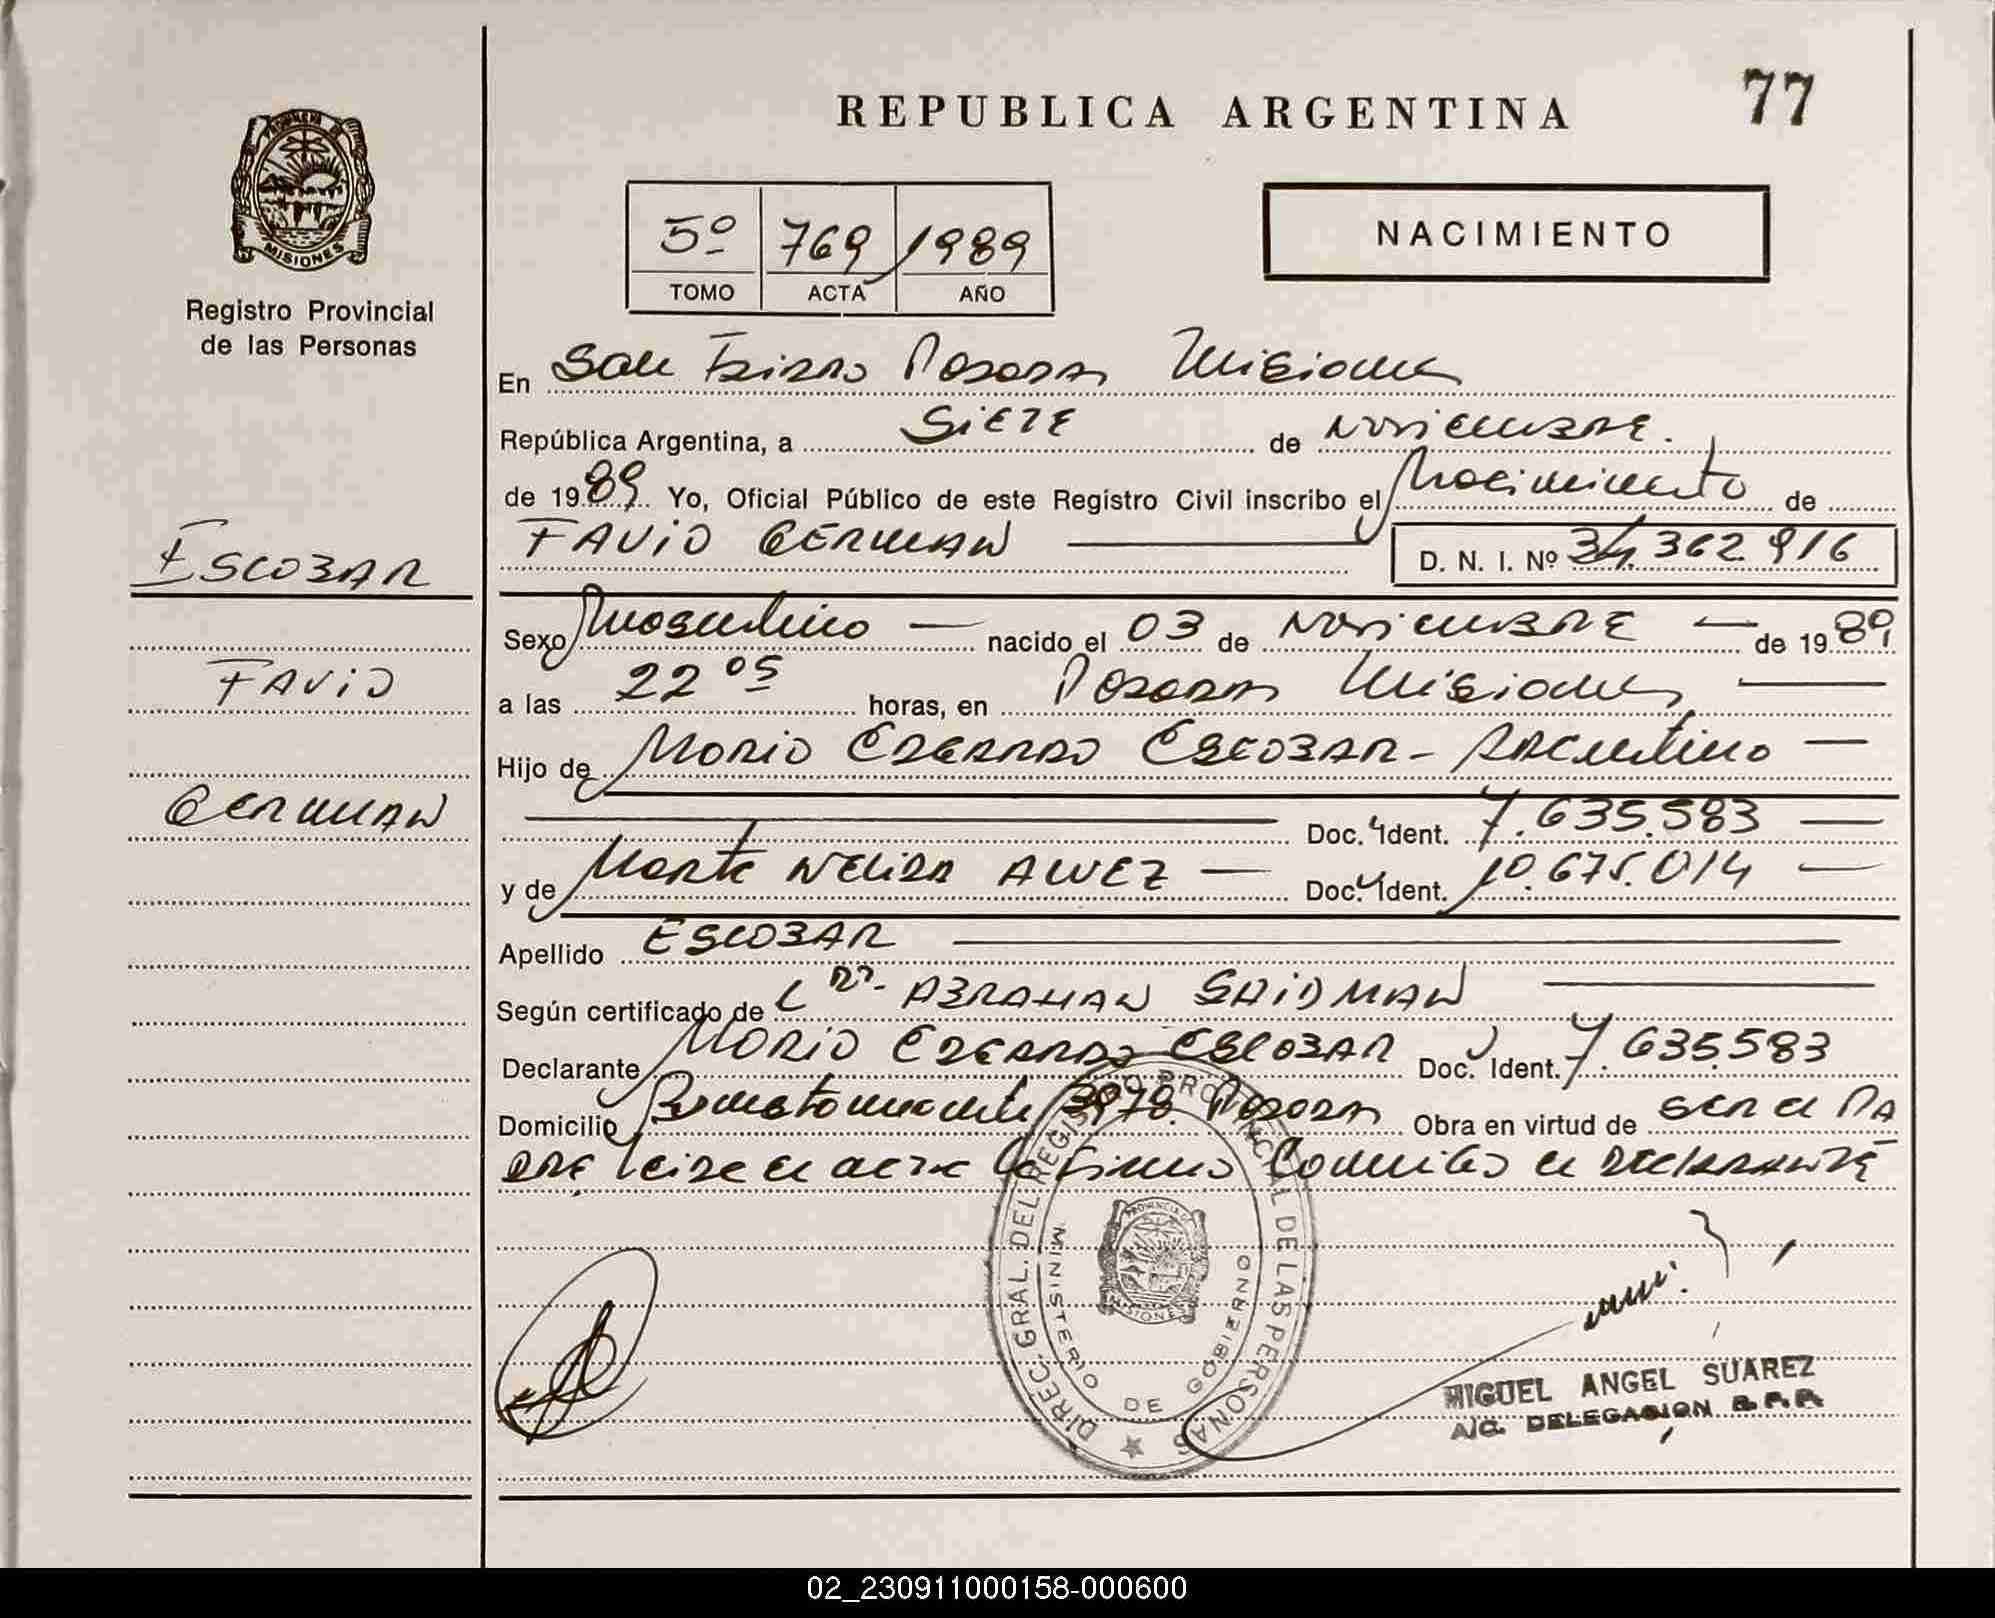 77
REPUBLICA ARGENTINA
PROVINCIA DE
MISIONES
Registro Provincial
de las Personas
5º 769 1989
TOMO ACTA AÑO
NACIMIENTO
En San Isidro Posadas Misiones
República Argentina, a siete de noviembre.
de 1989. Yo, Oficial Público de este Registro Civil inscribo el Nacimiento de
FAVIO GERMAN
D. N. I. Nº 34.362.916
ESCOBAR
FAVIO
GERMAN
Sexo Masculino nacido el 03 de noviembre de 1989
a las 22 05 horas, en Posadas Misiones
Hijo de Mario Edgardo Escobar - Argentino
Doc. Ident. 7.635.583
y de Marta Nelida Alvez Doc. Ident. 10.675.014
Apellido ESCOBAR
Según certificado de Dr. Abrahan Saidman
Declarante Mario Edgardo Escobar Doc. Ident. 7.635.583
Domicilio 3978 Posadas Obra en virtud de ser el pa
dre leida el acta la firma conmigo el declarante
DIREC. GRAL. DEL REGISTRO PROVINCIAL DE LAS PERSONAS
MINISTERIO DE GOBIERNO
PROVINCIA DE
MISIONES
MIGUEL ANGEL SUAREZ
A/C. DELEGACION
02_230911000158-000600